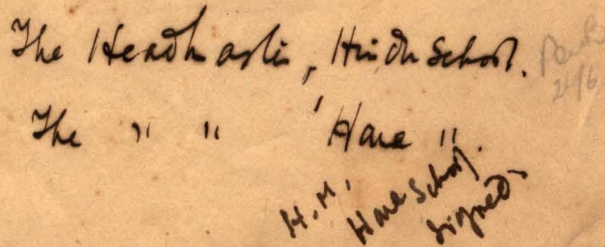 The Headmaster, Hindu School.
The " " Hare "
H. M.,
Hare School.
Signed
24/6